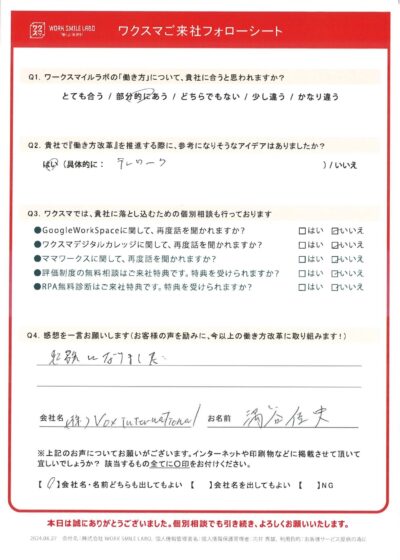 ワクスマ
WORK SMILE LABO
ワクスマご来社フォローシート
Q1. ワークスマイルラボの「働き方」について、貴社に合うと思われますか?
とても合う / 部分的にあう / どちらでもない / 少し違う / かなり違う
Q2. 貴社で『働き方改革』を推進する際に、参考になりそうなアイデアはありましたか?
はい (具体的に: テレワーク ) / いいえ
Q3. ワクスマでは、貴社に落とし込むための個別相談も行っております
●GoogleWorkSpaceに関して、再度話を聞かれますか? □はい ☑いいえ
●ワクスマデジタルカレッジに関して、再度話を聞かれますか? □はい ☑いいえ
●ママワークスに関して、再度話を聞かれますか? □はい ☑いいえ
●評価制度の無料相談はご来社特典です。特典を受けられますか? □はい ☑いいえ
●RPA無料診断はご来社特典です。特典を受けられますか? □はい ☑いいえ
Q4. 感想を一言お願いします(お客様の声を励みに、今以上の働き方改革に取り組みます!)
勉強になりました
会社名 (株) Vox International お名前
※上記のお声についてお願いがございます。インターネットや印刷物などに掲載させて頂いて
宜しいでしょうか? 該当するもの全てに○印をお付けください。
【○】会社名・名前どちらも出してもよい 【 】会社名を出してもよい 【 】NG
本日は誠にありがとうございました。個別相談でも引き続き、よろしくお願いいたします。
2024.06.27 会社名:株式会社 WORK SMILE LABO、個人情報管理者名:個人情報保護管理者